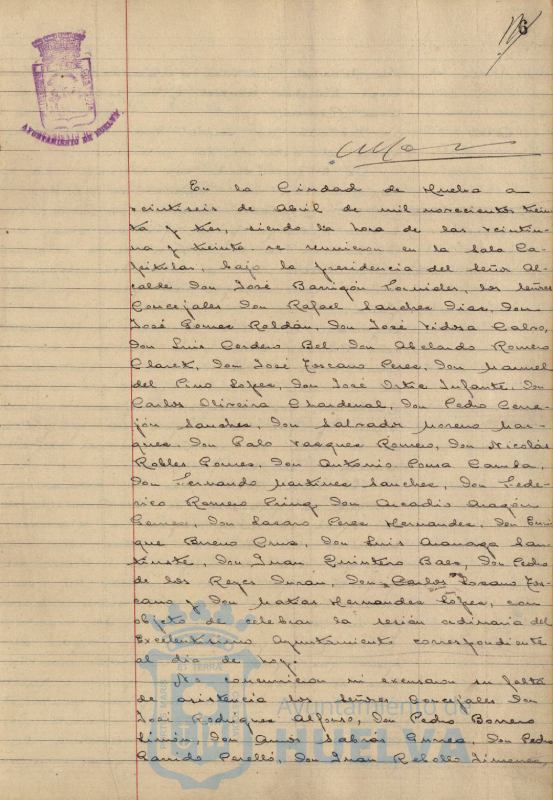 6
AYUNTAMIENTO DE HUELVA
En la Ciudad de Huelva a
veintiseis de Abril de mil novecientos trein
ta y tres, siendo la hora de las veintiu
na y treinta se reunieron en la Sala Ca-
pitular, bajo la presidencia del Señor Al-
calde Don José Barrigón, los Señores
Concejales Don Rafael Sanchez Diaz, Don
José Gomez Roldán, Don José Vidosa Calvo,
Don Luis Cordero Bel, Don Abelardo Romero
Claret, Don José Toscano Perez, Don Manuel
del Pino Lopez, Don José Ortiz Infante, Don
Carlos Oliveira Chardenal, Don Pedro Corne-
jón Sanchez, Don Salvador Moreno Mar-
quez, Don Pablo Vazquez Romero, Don Nicolás
Robles Gomez, Don Antonio Pousa Camba,
Don Fernando Martinez Sanchez, Don Fede-
rico Romero Don Arcadio Aragón
Gomez, Don Lazaro Perez Hernandez, Don Enri
que Bueno Cruz, Don Luis San-
Don Juan Quintero Baez, Don Pedro
de los Reyes Duran, Don Carlos Lozano Tos-
cano y Don Matias Hernandez Lopez, con
objeto de celebrar la sesión ordinaria del
Excelentisimo Ayuntamiento correspondiente
al dia de hoy.
No concurrieron ni excusaron su falta
de asistencia los Señores Concejales Don
José Rodriguez Alfonso, Don Pedro Borrero
Limón, Don Amós Sabrás Gurrea, Don Pedro
Garrido Perelló, Don Juan Rebollo Jimenez,
Ayuntamiento de
HUELVA